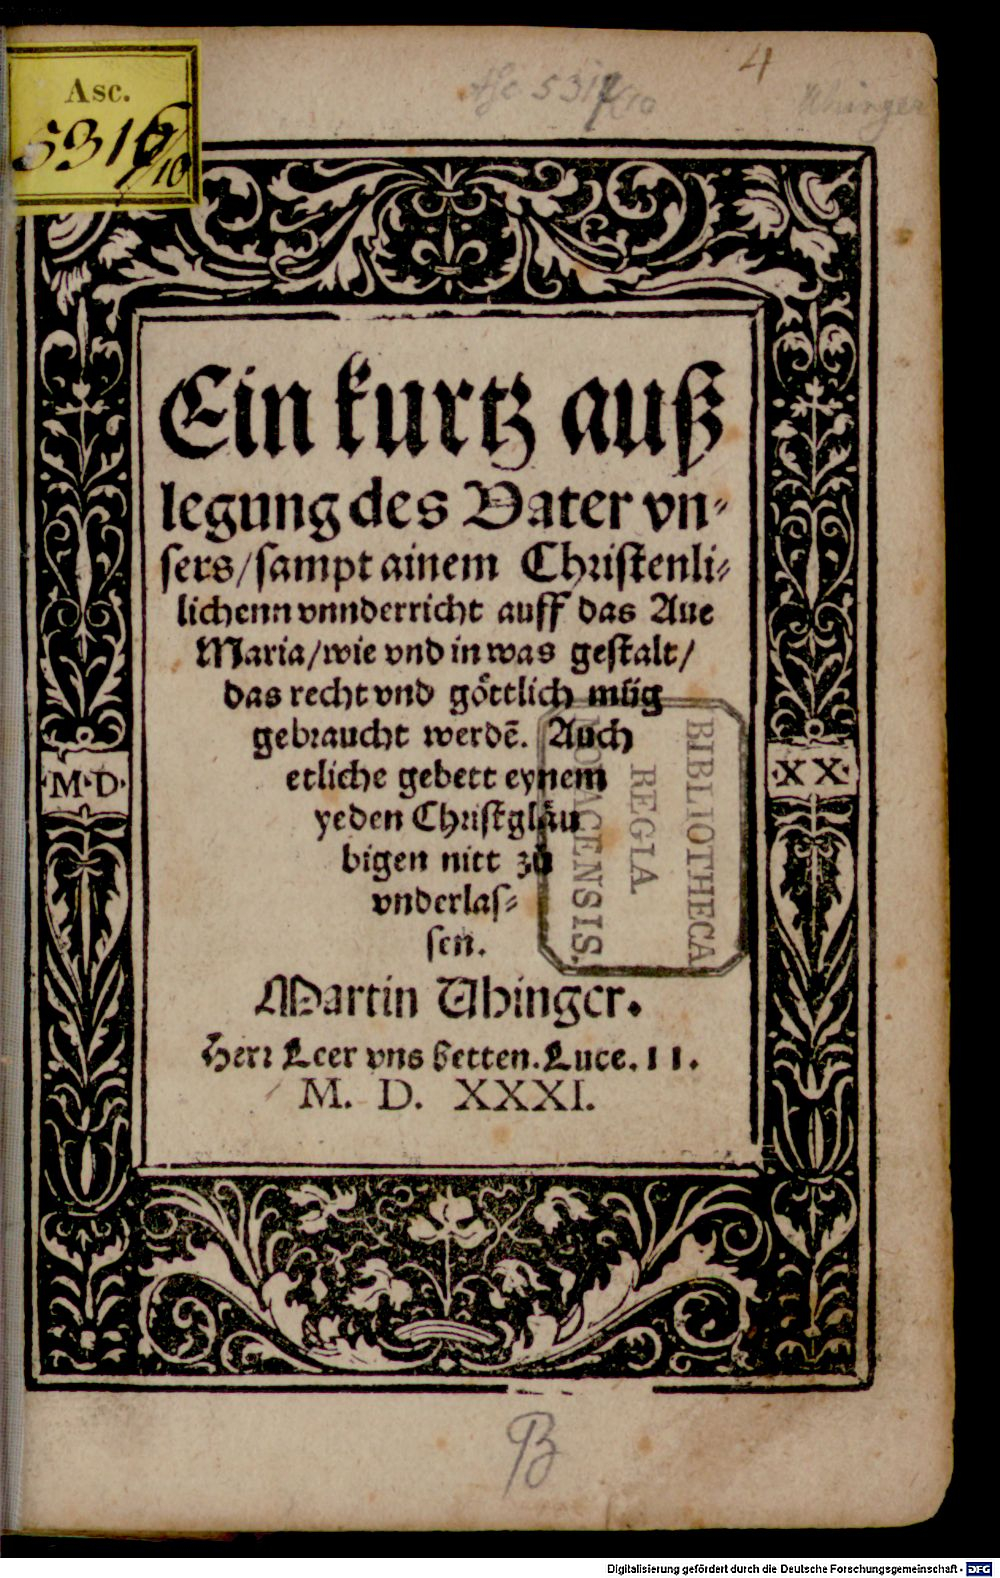 Asc.
5316/10
4
Uhinger
Ein kurtz auß
legung des Vater vn-
sers/sampt ainem Christenli-
lichenn vnnderricht auff das Aue
Maria/wie vnd in was gestalt/
das recht vnd göttlich müg
gebraucht werdẽ. Auch
etliche gebett eynem
yeden Christgläu
bigen nitt zů
vnderlas-
sen.
Martin Uhinger.
Herr Leer vns betten. Luce. 11.
M. D. XXXI.
·M·D·
·XX·
BIBLIOTHECA
REGIA
MONACENSIS.
Digitalisierung gefördert durch die Deutsche Forschungsgemeinschaft - DFG